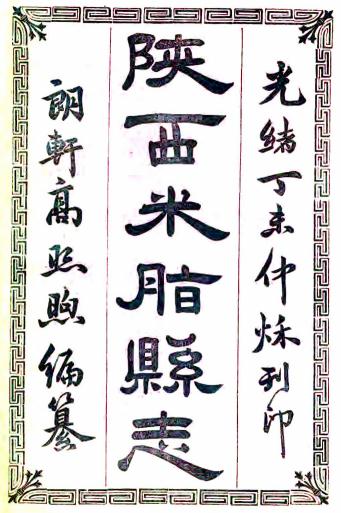 光緒丁未仲秌刊印
陝西米脂縣志
朗軒高照煦編纂